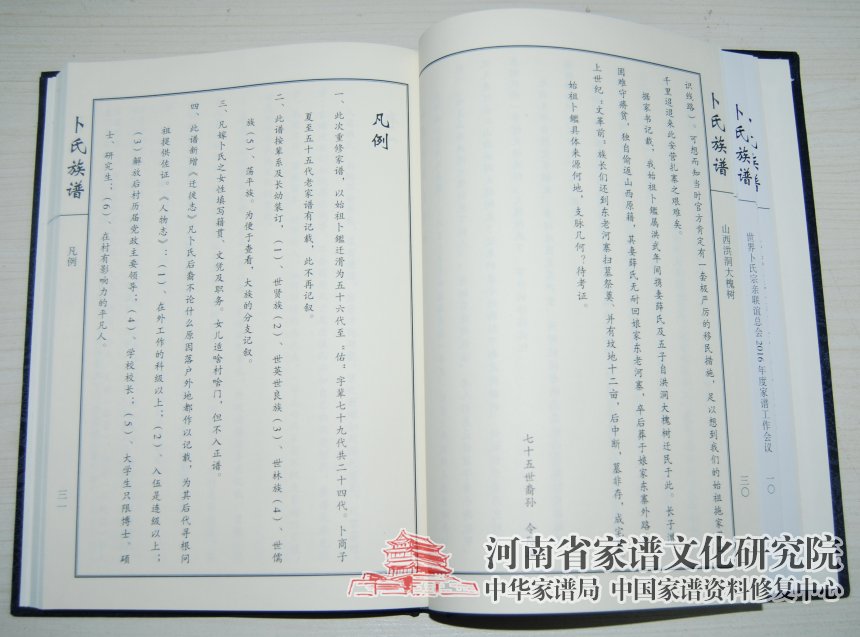 世界卜氏宗亲联谊总会2016年度家谱工作会议
一〇
卜氏族谱
三〇
卜氏族谱
山西洪洞大槐树
识线路）、可想而知当时官方肯定有一套极严厉的移民措施，足以想到我们的始祖拖家
千里迢迢来此安营扎寨之艰难矣。
据家书记载，我始祖卜鑑属洪武年间携妻薛氏及五子自洪洞大槐树迁民于此。长子
困难守瘠贫，独自偷返山西原籍，其妻薛氏无耐回娘家东老河寨，卒后葬于娘家东寨外路
上世纪：文革前：族长们还到东老河寨扫墓祭奠、并有坟地十二亩，后中断，墓非存，成
始祖卜鑑具体来源何地，支脉几何？待考证。
七十五世裔孙 令
凡例
一、此次重修家谱，以始祖卜鑑迁滑为五十六代至：佑：字辈七十九代共二十四代。卜商子
夏至五十五代老家谱有记载，此不再记叙。
二、此谱按辈系及长幼装订，（1）、世贤族（2）、世英世良族（3）、世林族（4）、世儒
族（5）、荡平族。为便于查看，大族的分支记叙。
三、凡嫁卜氏之女性填写籍贯、文凭及职务。女儿适啥村啥门，但不入正谱。
四、此谱新增《迁徙志》凡卜氏后裔不论什么原因落户外地都作以记载，为其后代寻根问
祖提供佐证。《人物志》：（1）、在外工作的科级以上；（2）、入伍是连级以上；
（3）解放后村历届党政主要领导；（4）、学校校长；（5）、大学生只限博士。硕
士、研究生；（6）、在村有影响力的平凡人。
卜氏族谱
凡例
三一
河南省家谱文化研究院
中华家谱局 中国家谱资料修复中心